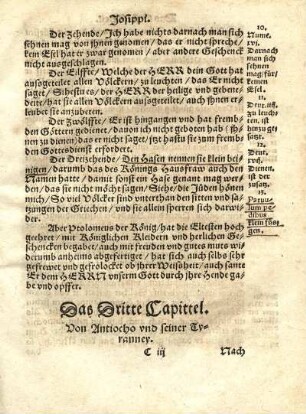 Josippi.
Der Zehende/ Ich habe nichts darnach man sich
sehnen mag von jhnen genomen/ das er nicht spreche/
kein Esel hat er zwar genomen/ aber andere Geschenck
nicht ausgeschlagen.
Der Eilffte/ Welche der HERR dein Gott hat
ausgeteilet allen Völckern/ zu leuchten/ das Er nicht
saget/ Sihestu es/ der HERR der heilige vnd gebene-
deite/ hat sie allen Völckern ausgeteilet/ auch jhnen er-
leubet sie anzubeten.
Der Zwölffte/ Er ist hingangen vnd hat frembd-
den Göttern gedienet/ davon ich nicht geboten hab/ jh-
nen zu dienen/ das er nicht saget/ jtzt hastu sie zum frembd-
den Gottesdienst erfordert.
Der Dreizehende/ Den Hasen nennen sie klein bei-
nigen/ darumb das des Königs Hausfraw auch den
Namen hatte/ damit sonsten ein Hase genant mag wer-
den/ das sie nicht möcht sagen/ Siehe/ die Jüden hönen
mich/ So viel Völcker sind vnterthan den sitten vnd sa-
tzungen der Griechen/ vnd sie allein sperren sich darwi-
der.
Aber Ptolomeus der König/ hat die Eltesten hoch
geehret/ mit Königlichen Kleidern vnd herlichen Ge-
schencken begabet/ auch mit freuden vnd gutes muts wi-
derumb anheims abgefertiget/ hat sich auch selbs sehr
gefrewet vnd gefrolocket ob jhrer Weisheit/ auch sante
Er dem HERRN vnserm Gott durch jhre Hende gabe
vnd opffer.
10.
Nume.
xvi.
Darnach
man sich
sehnen
mag/ für/
keinen
Esel.
11.
zu leuch-
ten, ist
hinzu ge-
satzt.
12.
Deut.
xvij.
Dienen,
ist der
zusatz.
13.
Das Dritte Capittel.
Von Antiocho vnd seiner Ty-
ranney.
C iij
Nach